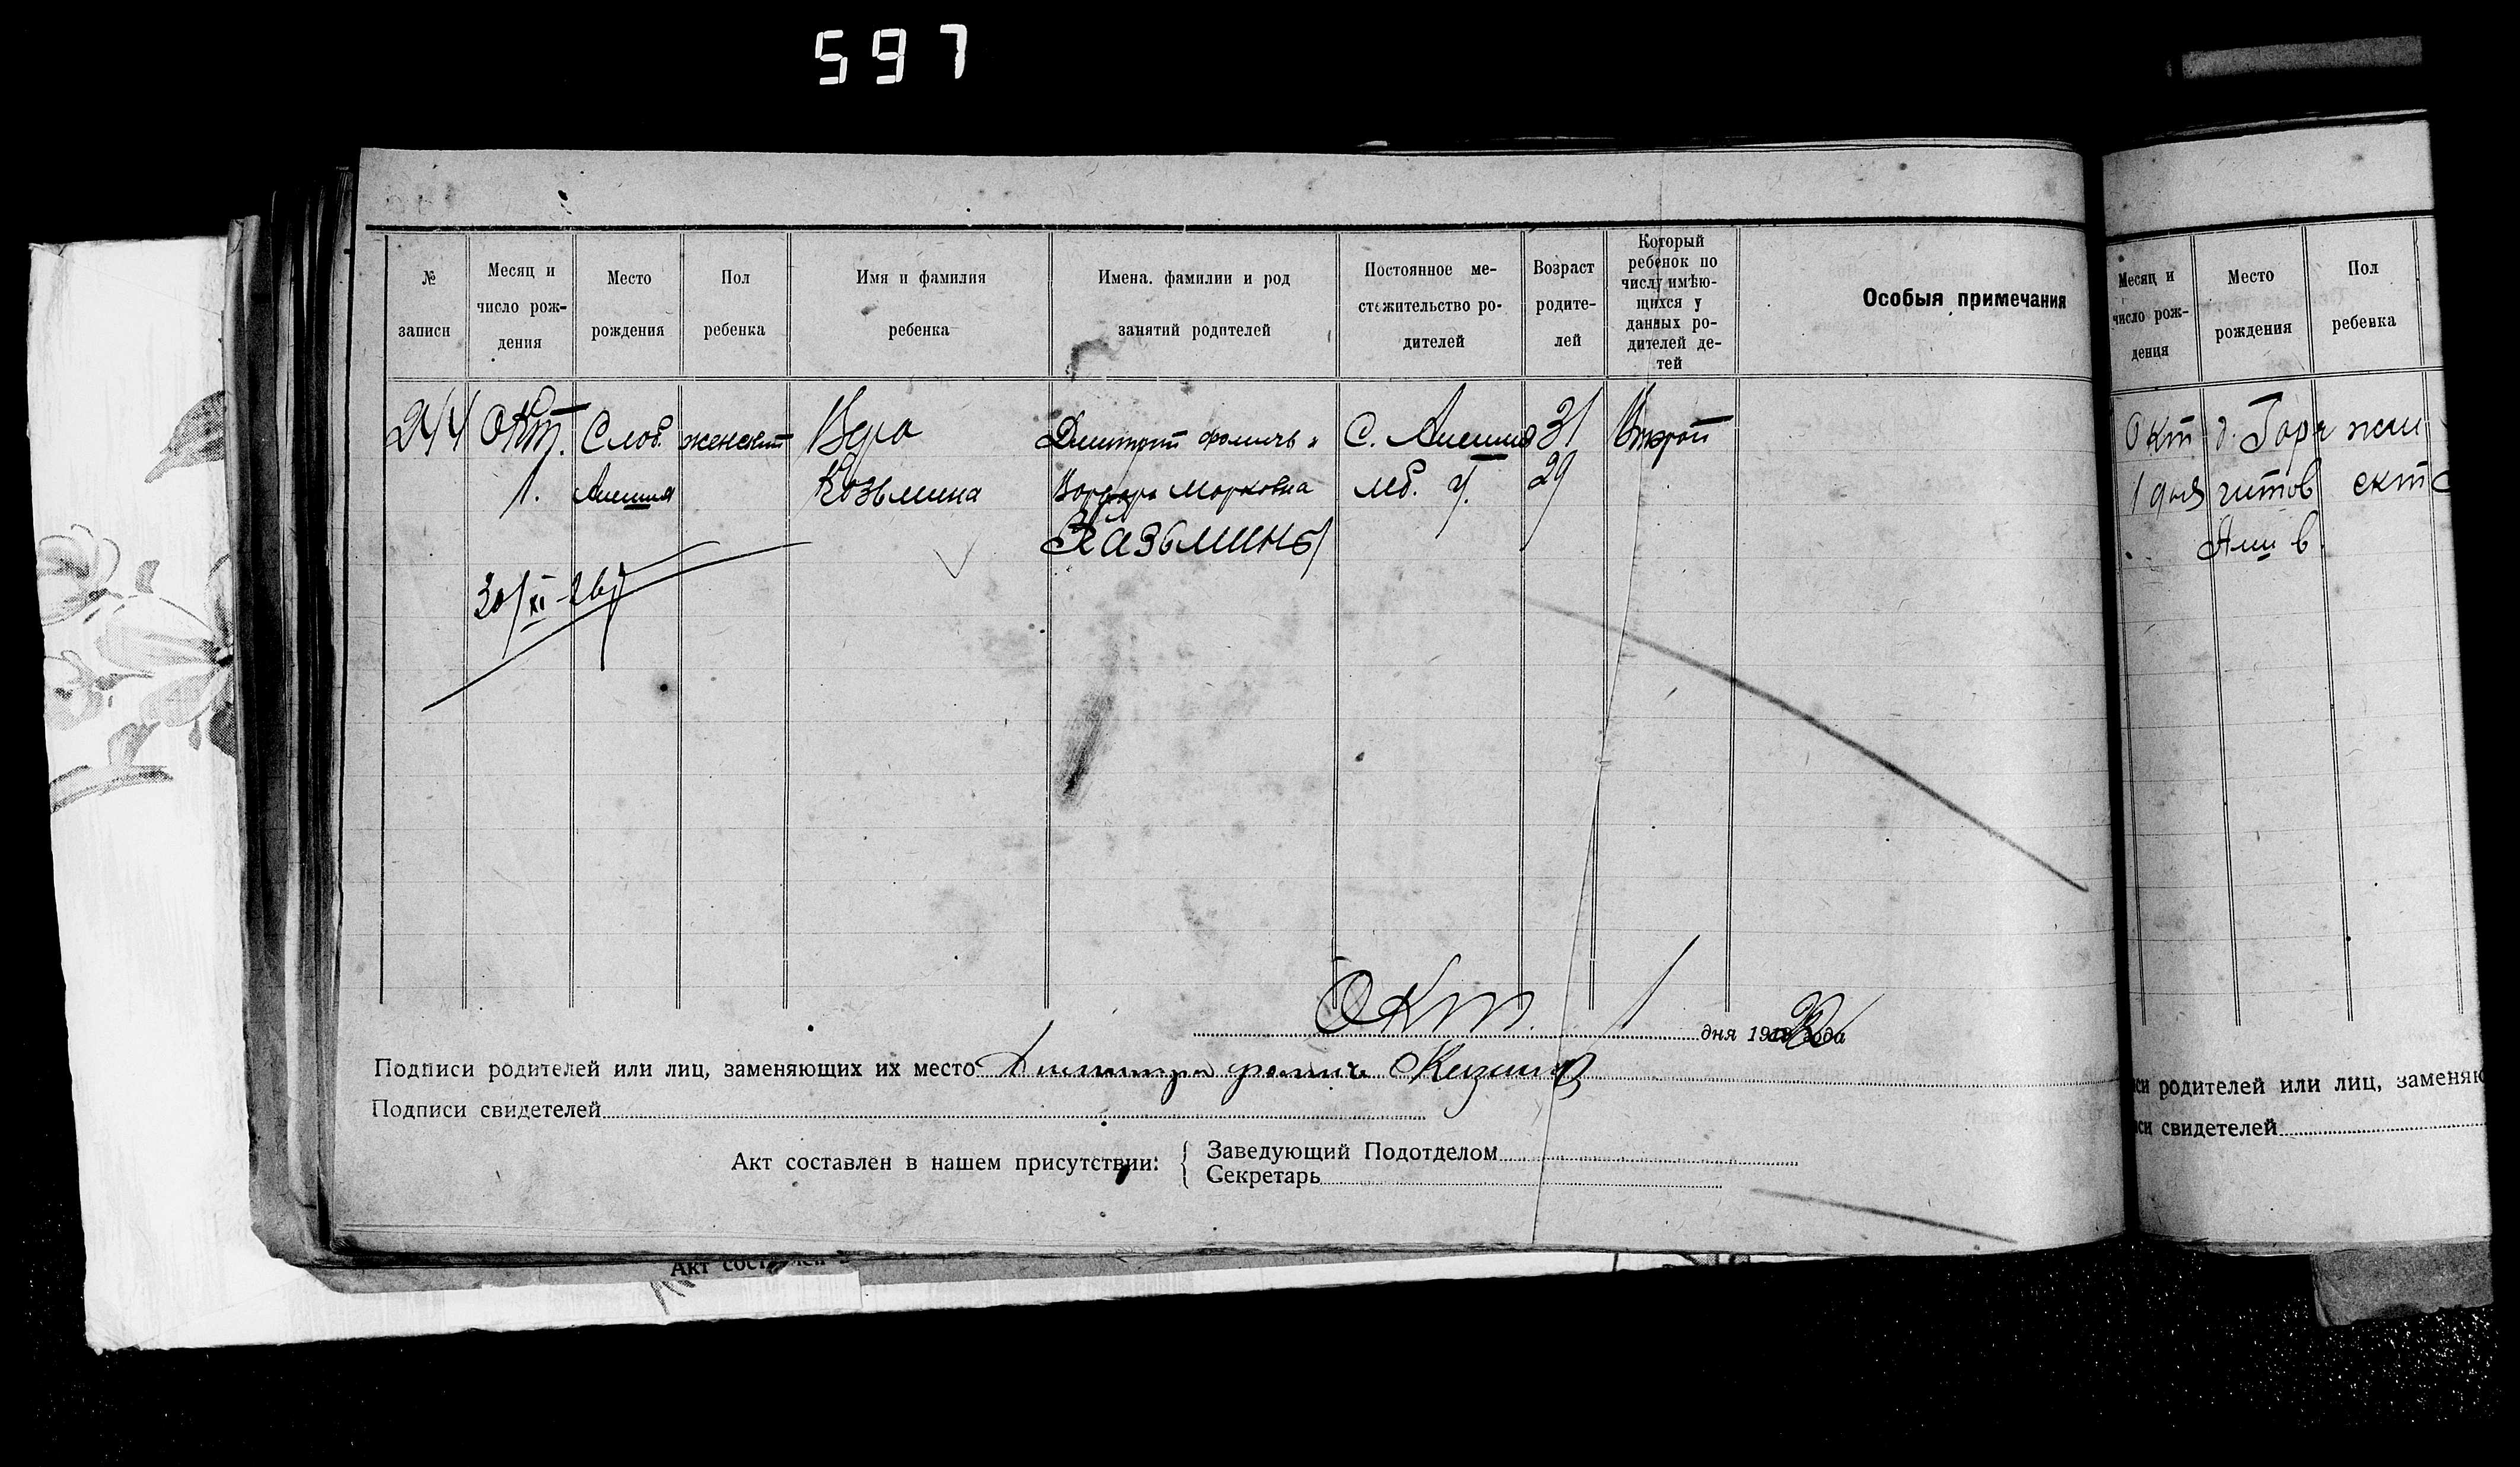 597
№ записи
Месяц и число рождения
Место рождения
Пол ребенка
Имя и фамилия ребенка
Имена. фамилии и род занятий родителей
Постоянное местожительство родителей
Возраст родителей
Который ребенок по числу имѣющихся у данных родителей детей
Особыя примечания
244
Окт.
1.
Слоб.
женский
Вера
Козьмина
Дмитрий фомичъ и
Варвара Марковна
Казьмины
С.
31
29
Второй
30/XI-26
Окт. 1 дня 19 года
Подписи родителей или лиц, заменяющих их место
Подписи свидетелей
Акт составлен в нашем присутствии:
Заведующий Подотделом
Секретарь
Месяц и число рождения
Место рождения
Пол ребенка
Окт
1 дня
си родителей или лиц, заменяю
си свидетелей